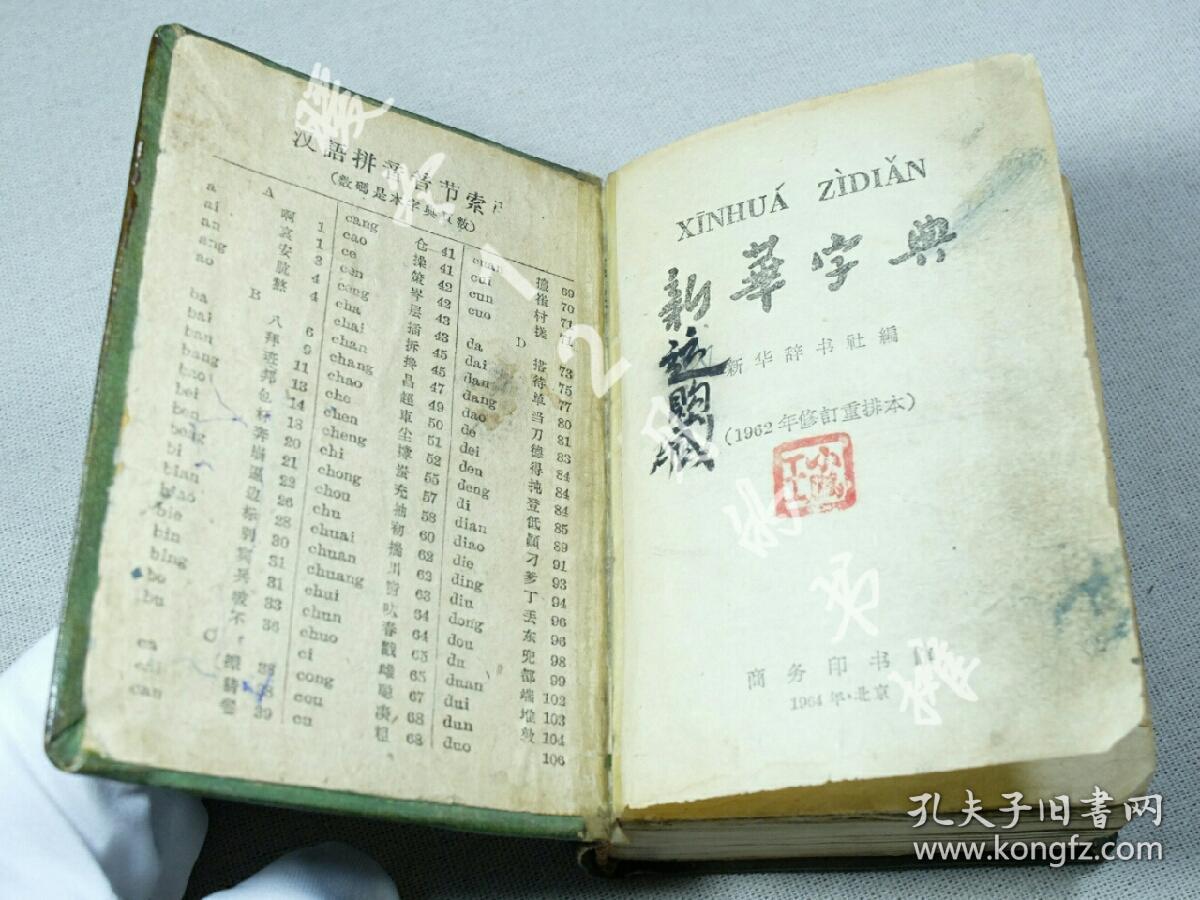 汉語拼音音节索
(数碼是本字典頁数)
A
a 啊 1
ai 哀 1
an 安 3
ang 骯 4
ao 熬 4
B
ba 八 6
bai 拜 9
ban 班 11
bang 邦 13
bao 包 14
bei 杯 18
ben 奔 20
beng 崩 21
bi 逼 22
bian 边 26
biao 标 28
bie 别 30
bin 宾 31
bing 兵 31
bo 玻 33
bu 不 36
C
ca
cai 猜 38
can 餐 39
cang 仓 41
cao 操 41
ce 策 42
cen 岑 42
ceng 层 43
cha 插 43
chai 拆 45
chan 搀 45
chang 昌 47
chao 超 49
che 車 50
chen 尘 51
cheng 撑 52
chi 蚩 55
chong 充 57
chou 抽 58
chu 初 60
chuai 揣 62
chuan 川 62
chuang 窗 63
chui 吹 64
chun 春 64
chuo 戳 65
ci 疵 65
cong 聪 67
cou 凑 68
cu 粗 68
cuan
cui 崔 70
cun 村 71
cuo 搓 71
D
da 搭 73
dai 待 75
dan 单 77
dang 当 80
dao 刀 81
de 德 83
dei 得 84
den 扽 84
deng 登 84
di 低 85
dian 顚 89
diao 刁 91
die 爹 93
ding 丁 94
diu 丢 96
dong 东 96
dou 兜 98
du 都 99
duan 端 102
dui 堆 103
dun 敦 104
duo 106
XĪNHUÁ ZÌDIǍN
新華字典
新华辞书社編
(1962年修訂重排本)
购藏
瑞
商务印书
1964年·北京
孔夫子旧书网
www.kongfz.com